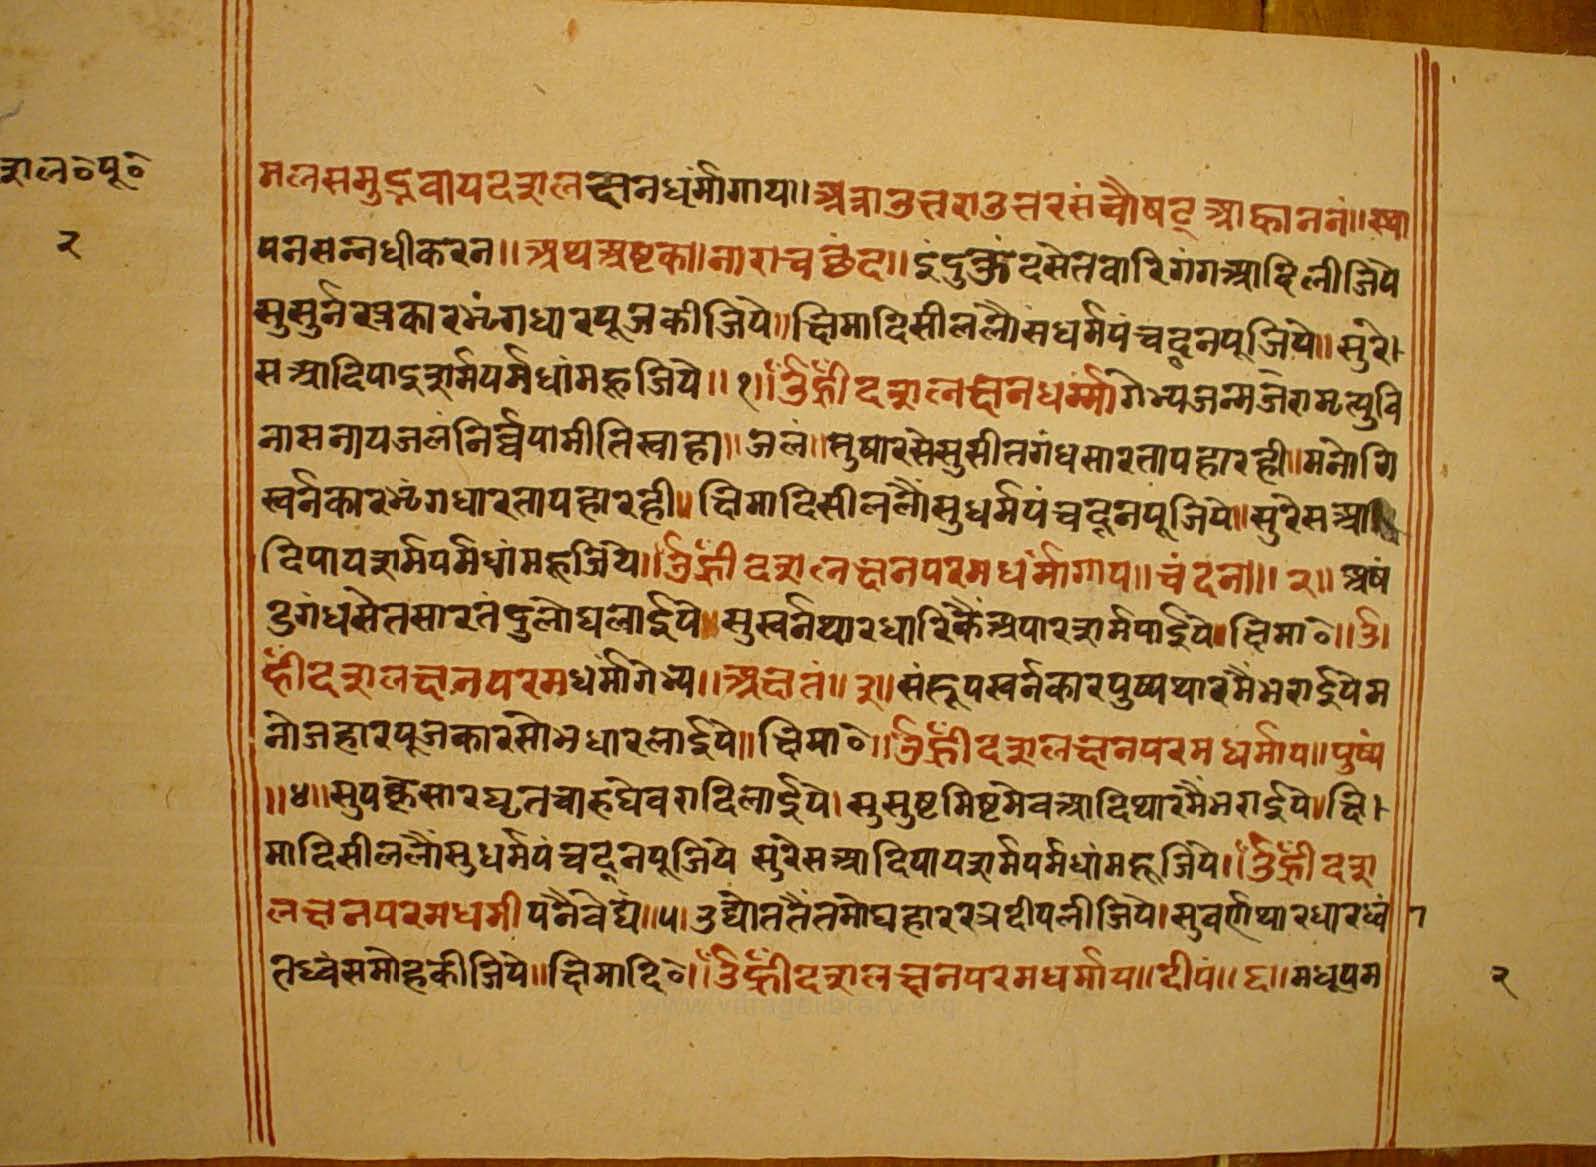 दशलº पूº
२
मलसमुद्भवाय दशलक्षनधर्मांगाय ॥ अत्रातुत्तरातुत्तर संवौषट् आह्वाननं ॥ स्था
पनसन्नधीकरन ॥ अथ अष्टका ॥ नाराच छंद ॥ इंदु कुंद सेत वारि गंग आदि लीजिये
सुसुर्न रत्न कार भृंग धार पूज कीजिये ॥ क्षिमादि सील लौ सधर्म पंच दून पूजिये ॥ सुरे
स आदि पाइ शर्म पर्म धांम हूजिये ॥ १ ॥ ॐ ह्रीं दशलक्षनधर्म्मांगेभ्य जन्मजरामृत्युवि
नासनाय जलं निर्व्वपामीति स्वाहा ॥ जलं ॥ सुषारसे सुसीत गंध सार ताप हारही ॥ मनोगि
स्वर्नकार भृंग धार ताप हारही ॥ क्षिमादि सील लौं सुधर्म पंच दून पूजिये ॥ सुरेस आ
दि पाय शर्म पर्म धांम हूजिये ॥ ॐ ह्रीं दशलक्षनपरमधर्मांगाय ॥ चंदना ॥ २ ॥ अषं
डुगंध सेत सार तंदुलोघ लाईये ॥ सुस्वर्न थार धारिकैं अपार शर्म पाईये ॥ क्षिमाº ॥ ॐ
ह्रीं दशलक्षनपरमधर्मांगेभ्य ॥ अक्षतं ॥ ३ ॥ संरूप स्वर्नकार पुष्प थारमैं भराईये म
नोज हार पूजकार सोभ धार लाईये ॥ क्षिमाº ॥ ॐ ह्रीं दशलक्षनपरमधर्माय ॥ पुष्पं
॥ ४ ॥ सुपक्क सार घृत चारु घेवरादि लाईये । सुसुष्ट मिष्ट मेव आदि थारमैं भराईये ॥ क्षि
मादि सील लौं सुधर्म पंच दून पूजिये सुरेस आदि पाय शर्म पर्म धांम हूजिये ॥ ॐ ह्रीं दश
लक्षनपरमधर्माय नैवेद्यं ॥ ५ । उद्योततैं तमोघ हार रत्न दीप लीजिये । सुवर्ण थार धार ध्वं
त ध्वंस मोह कीजिये ॥ क्षिमादिº ॥ ॐ ह्रीं दशलक्षनपरमधर्माय ॥ दीपं ॥ ६ ॥ मधूपम
२
www.villagelibrary.org